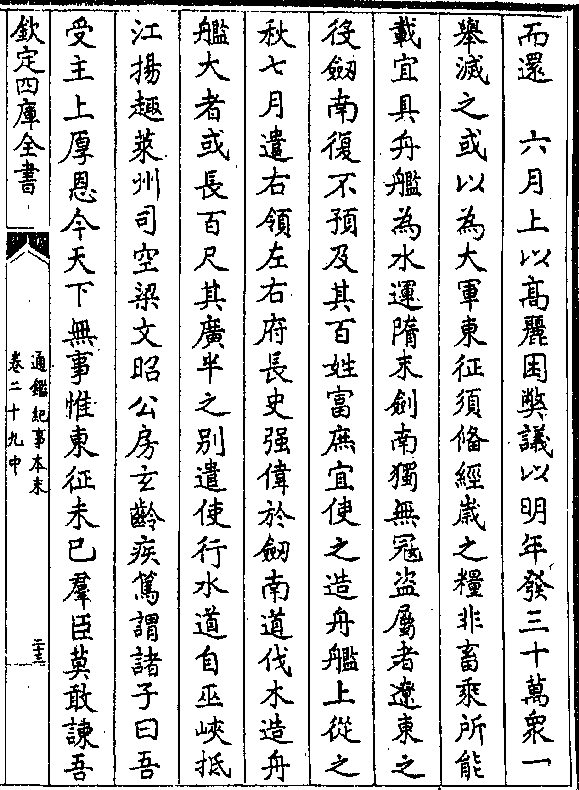 而還　六月上以高麗困弊議以明年發三十萬衆一
舉滅之或以為大軍東征須備經歲之糧非畜乘所能
載宜具舟艦為水運隋末劍南獨無冦盜屬者遼東之
役劒南復不預及其百姓富庶宜使之造舟艦上從之
秋七月遣右領左右府長史强偉於劒南道伐木造舟
艦大者或長百尺其廣半之别遣使行水道自巫峽抵
江揚趣萊州司空梁文昭公房玄齡疾篤謂諸子曰吾
受主上厚恩今天下無事惟東征未已羣臣莫敢諫吾
欽定四庫全書
通鑑紀事本末
卷二十九中
二十三